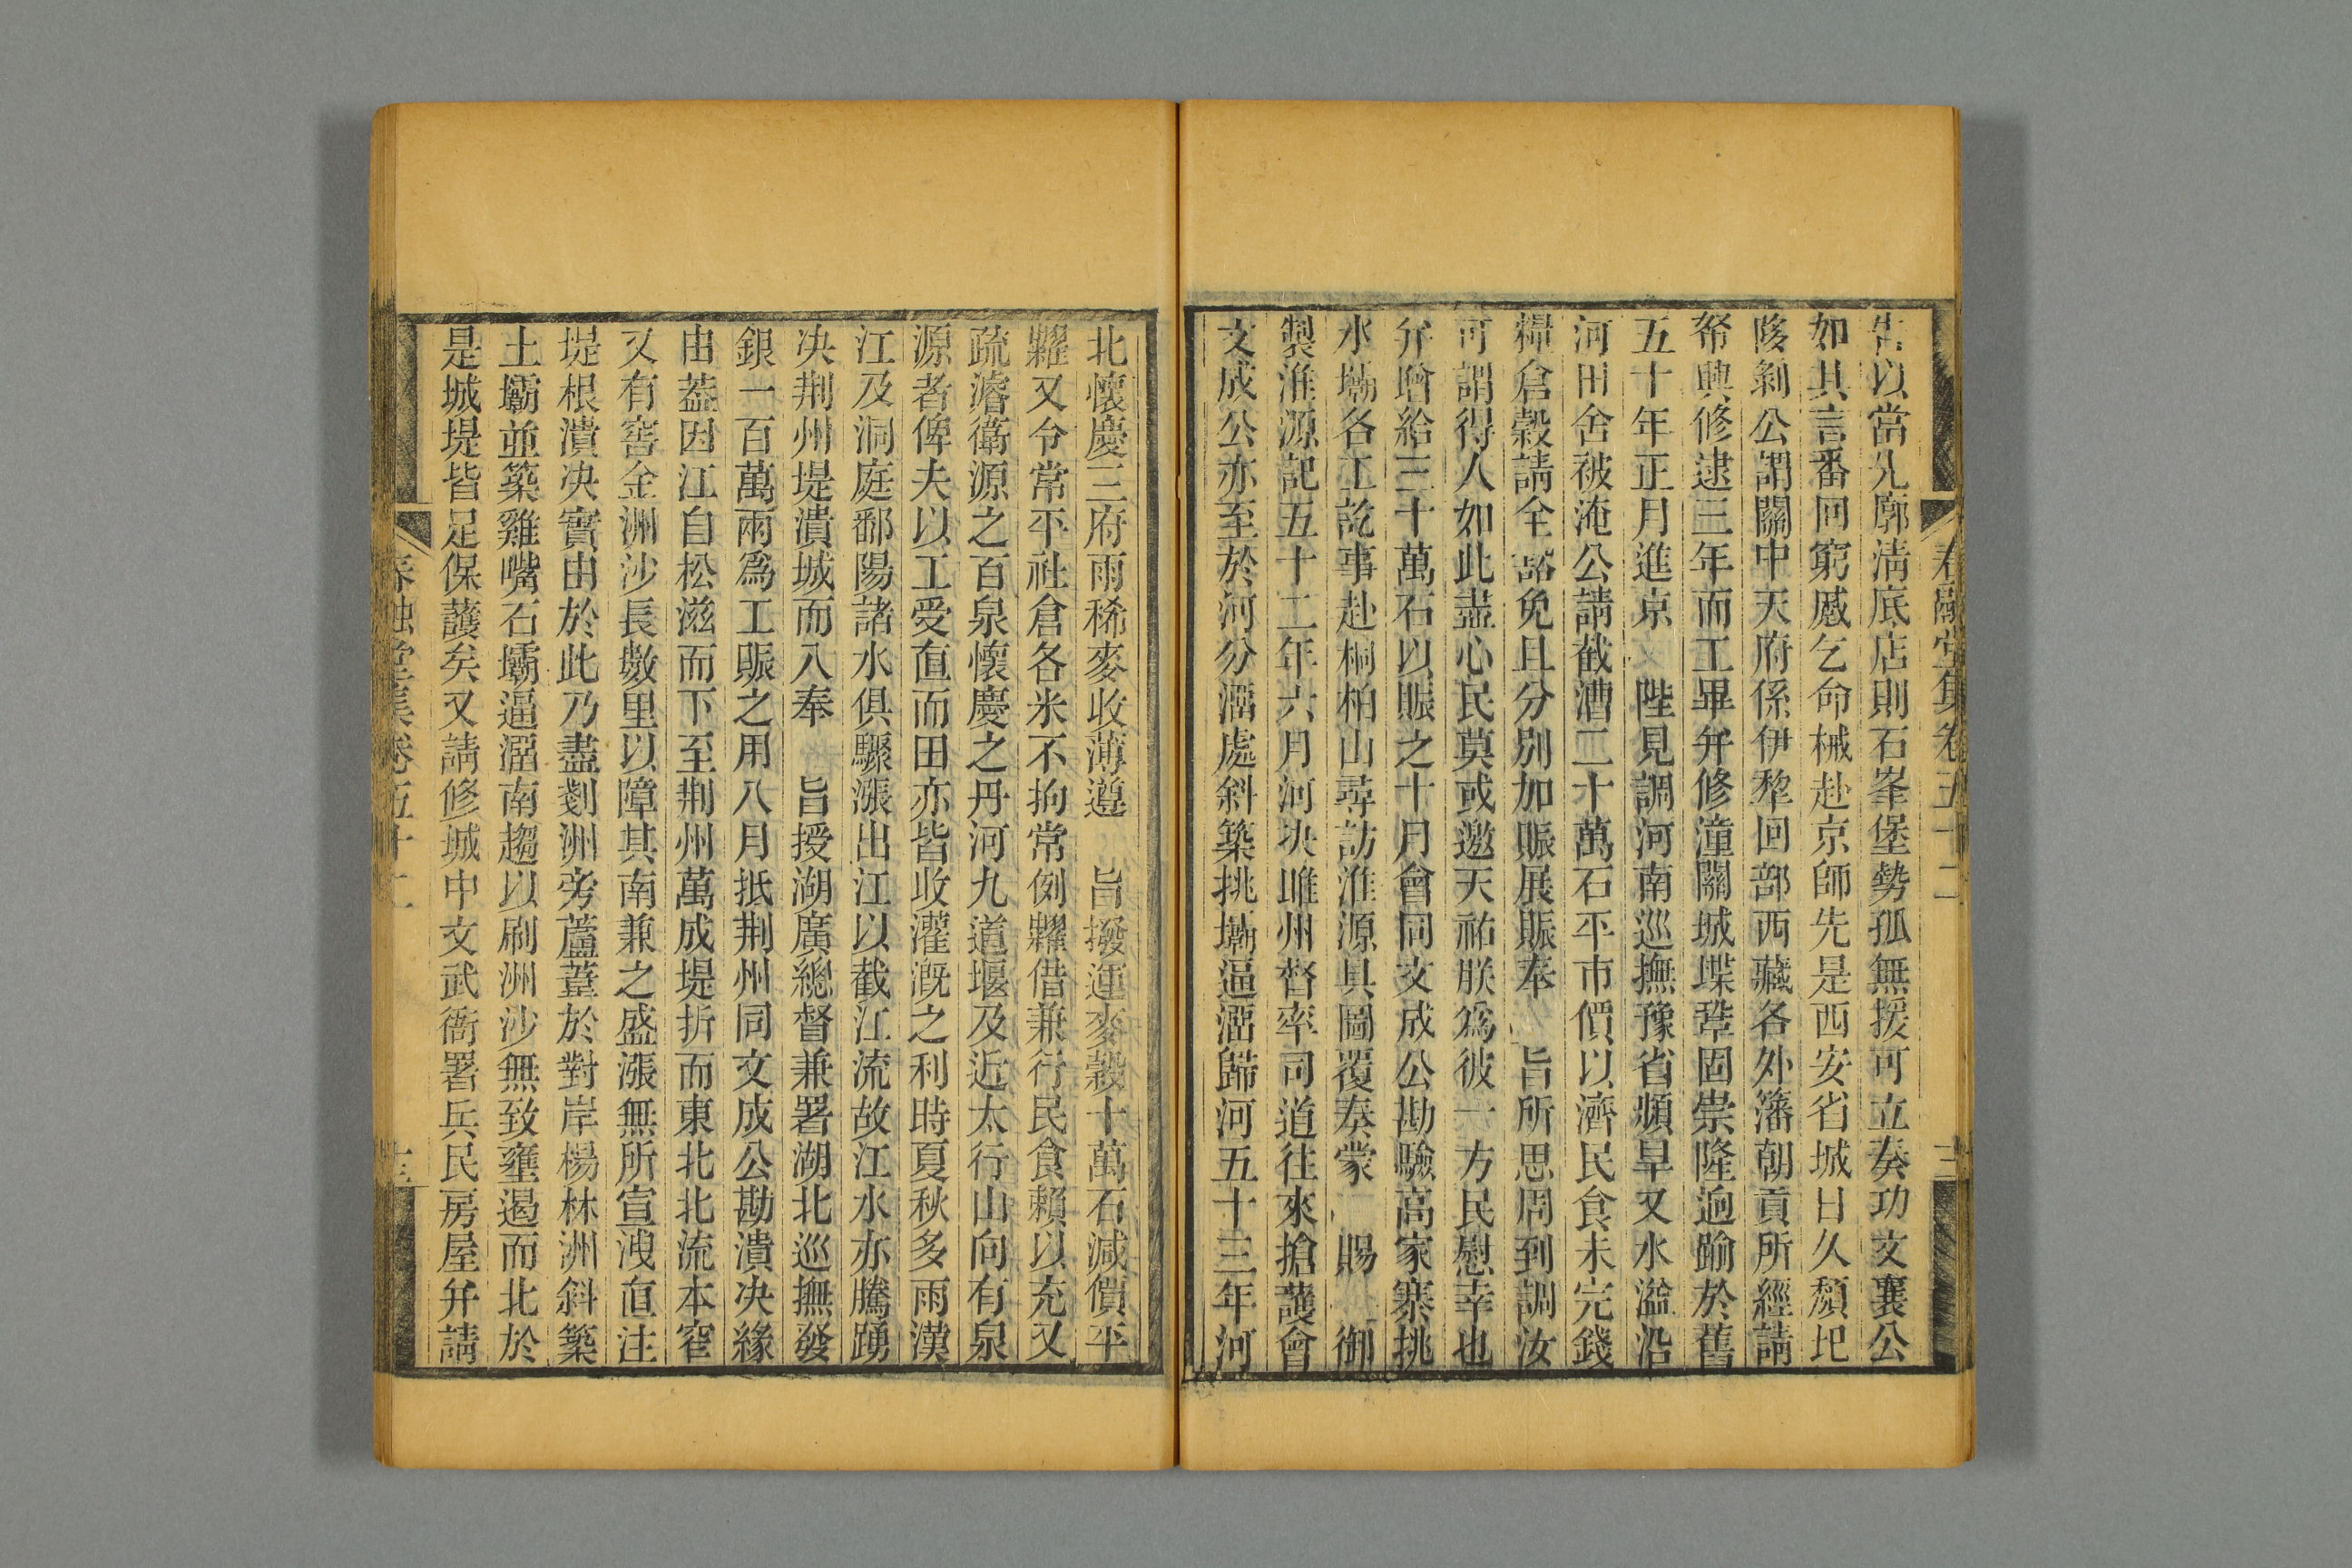 春融堂集卷五十二
告以當九廓清底店則石峯堡勢孤無援可立奏功文襄公
如其言番回窮慼乞命械赴京師先是西安省城日久頽圮
陊剝公謂關中天府係伊犂回部西藏各外藩朝貢所經請
帑興修逮三年而工畢并修潼關城堞鞏固崇隆逈踰於舊
五十年正月進京 陛見調河南巡撫豫省頻旱又水溢沿
河田舍被淹公請截漕二十萬石平市價以濟民食未完錢
糧倉穀請全豁免且分別加賑展賑奉 旨所思周到調汝
可謂得人如此盡心民莫或邀天祐朕爲彼一方民慰幸也
弁增給三十萬石以賑之十月會同文成公勘驗高家寨挑
水壩各工訖事赴桐柏山尋訪淮源具圖覆奏蒙 賜 御
製淮源記五十二年六月河决睢州督率司道往來搶護會
文成公亦至於河分溜處斜築挑壩逼溜歸河五十三年河
北懷慶三府雨稀麥收薄遵 旨撥運麥穀十萬石減價平
糶又令常平社倉各米不拘常例糶借兼行民食賴以充又
疏濬衛源之百泉懷慶之丹河九道堰及近太行山向有泉
源者俾夫以工受直而田亦皆收灌漑之利時夏秋多雨漢
江及洞庭鄱陽諸水俱驟漲出江以截江流故江水亦騰踴
决荆州堤潰城而入奉 旨授湖廣總督兼署湖北巡撫發
銀一百萬兩爲工賑之用八月抵荆州同文成公勘潰决緣
由葢因江自松滋而下至荆州萬成堤折而東北北流本窄
又有窖金洲沙長數里以障其南兼之盛漲無所宣洩直注
堤根潰决實由於此乃盡剗洲旁蘆葦於對岸楊林洲斜築
土壩並築雞嘴石壩逼溜南趨以刷洲沙無致壅遏而北於
是城堤皆足保護矣又請修城中文武衙署兵民房屋弁請
春融堂集卷五十二